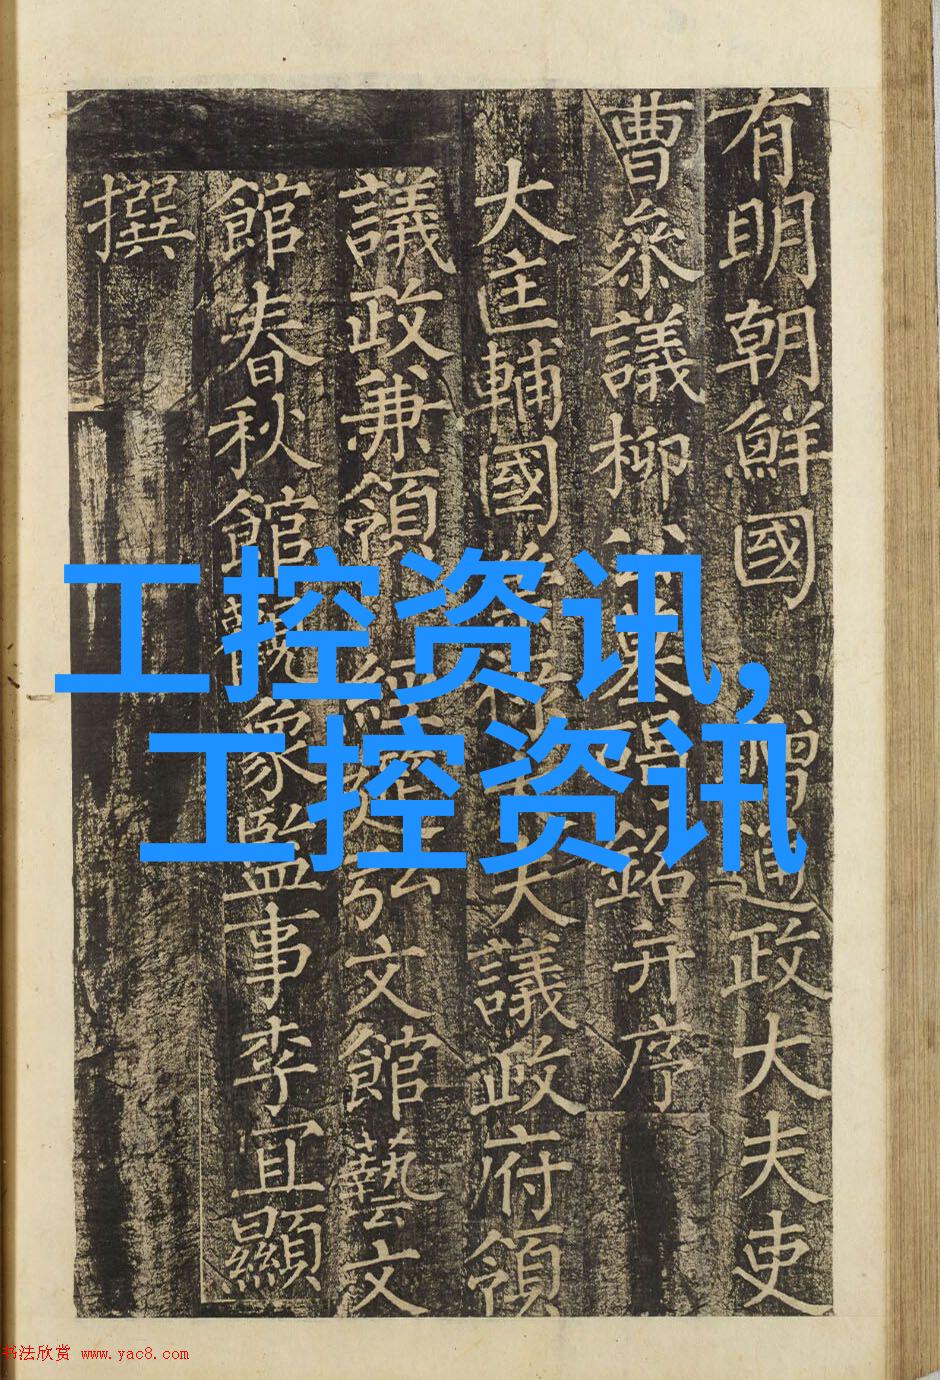 有明朝鮮國 贈通政大夫吏
曹參議柳公墓碣銘并序
大匡輔國崇祿大夫議政府領
議政兼領經筵弘文館藝文
館春秋館觀象監事李宜顯
撰
工控资讯,
工控资讯
书法欣赏 www.yac8.com